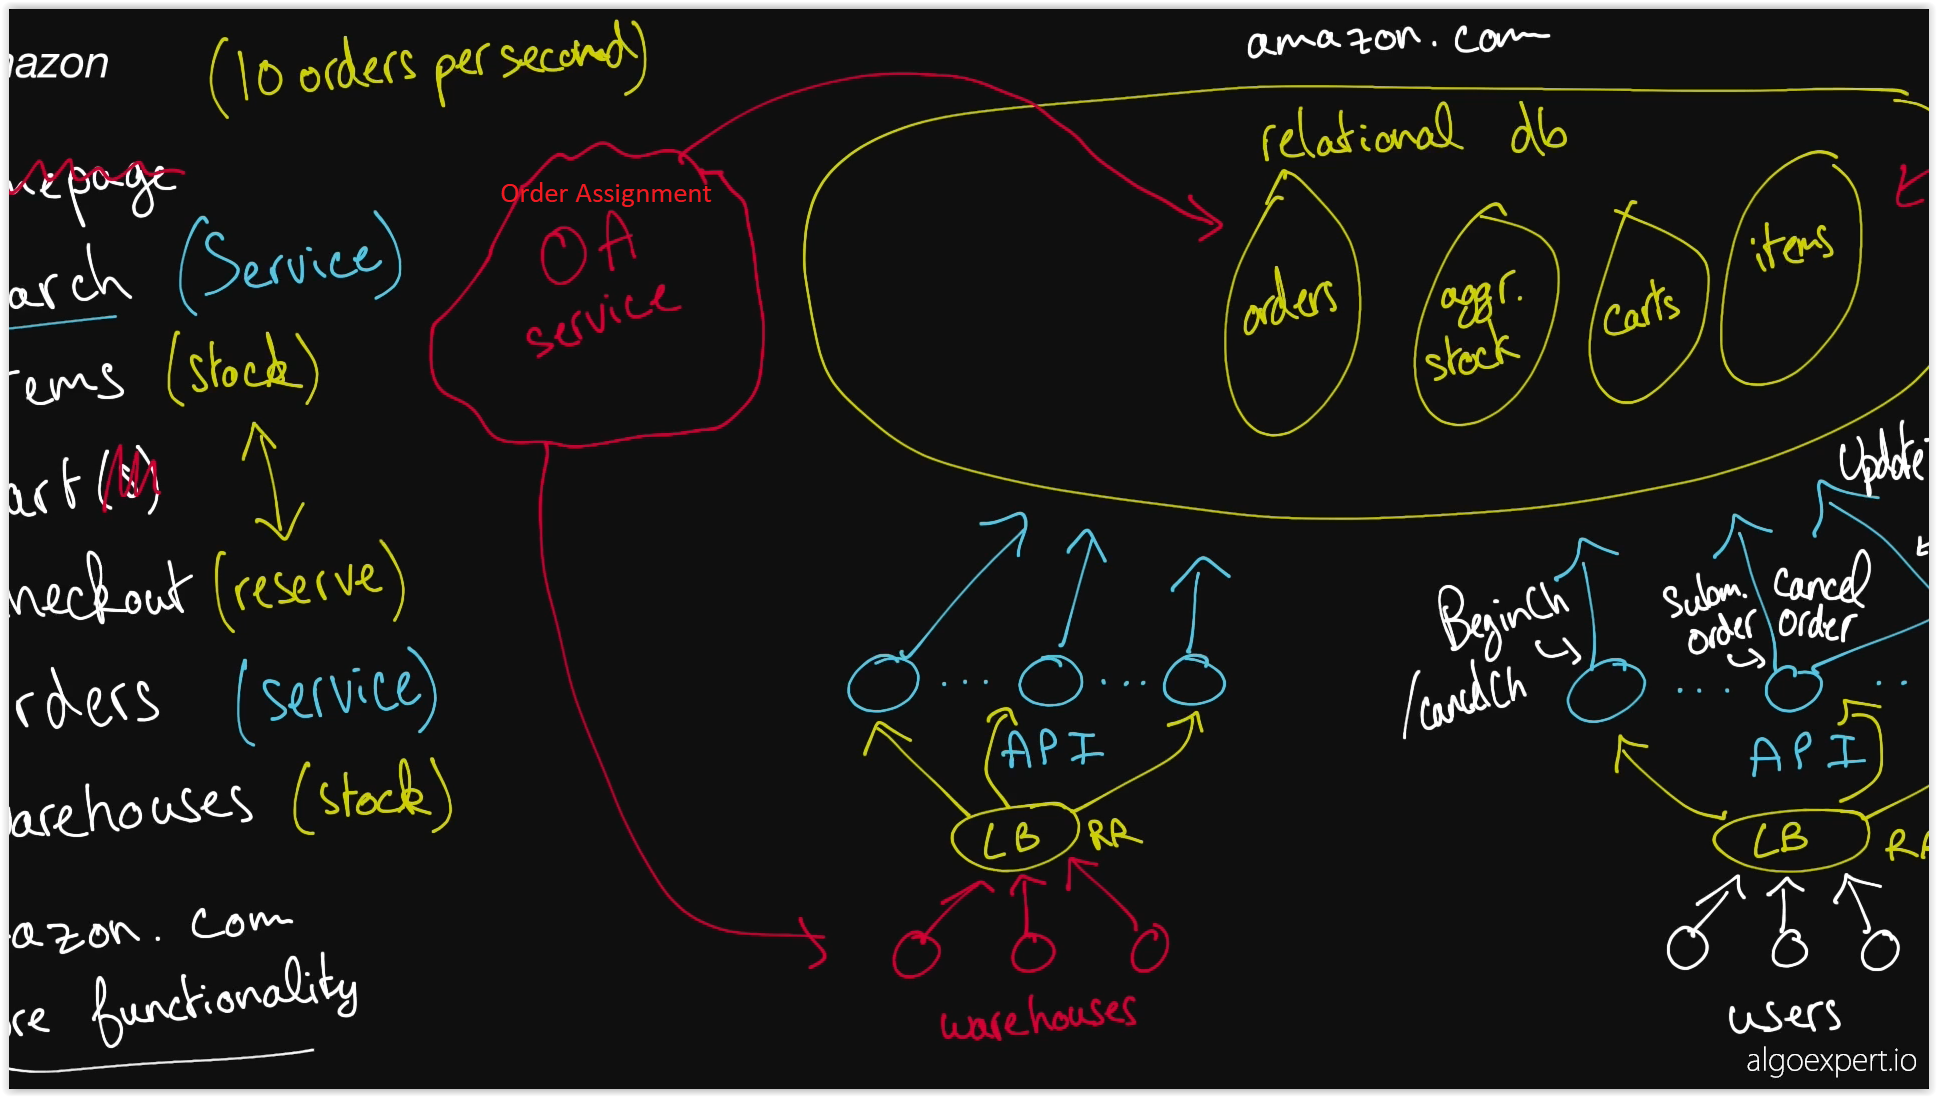 azon
(10 orders per second)
epage
arch (Service)
ems (stock)
art (s)
heckout (reserve)
rders (service)
arehouses (stock)
azon.com
re functionality
Order Assignment
OA
service
amazon.com
relational db
orders
aggr.
stock
carts
items
API
LB RR
warehouses
Update
BeginCh
/cancelCh
Subm.
order
Cancel
Order
API
LB
users
algoexpert.io